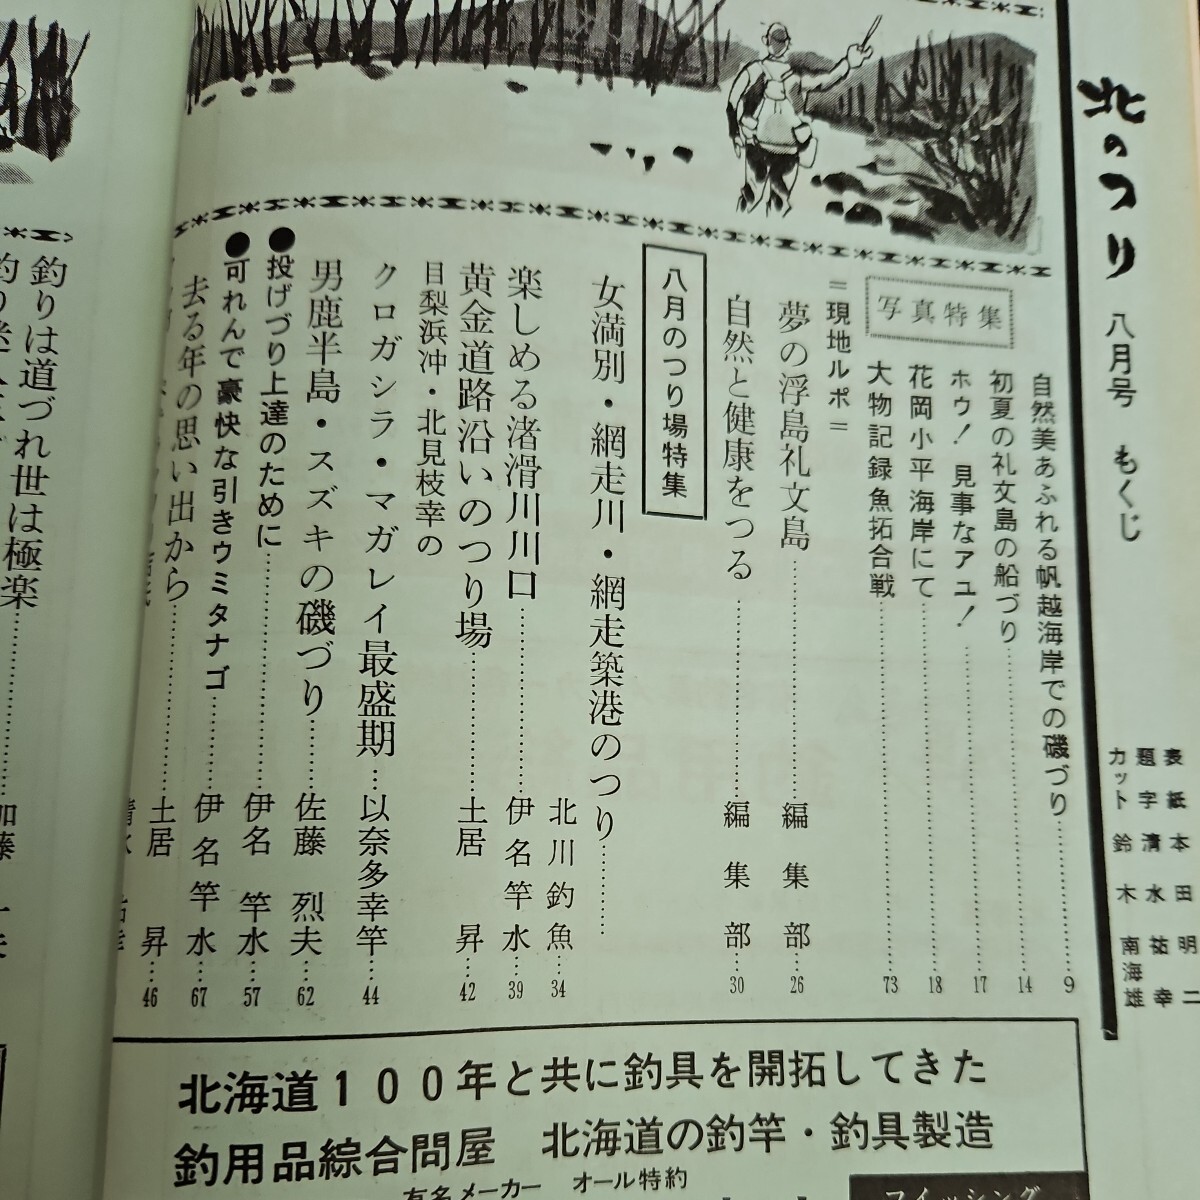 北のつり 八月号 もくじ
表紙 本田明二
題字 清水祐幸
カット 鈴木南海雄
写真特集
自然美あふれる帆越海岸での磯づり……9
初夏の礼文島の船づり……14
ホウ！見事なアユ！……17
花岡小平海岸にて……18
大物記録魚拓合戦……73
＝現地ルポ＝
夢の浮島礼文島……編集部…26
自然と健康をつる……編集部…30
八月のつり場特集
女満別・網走川・網走築港のつり……
北川釣魚…34
楽しめる渚滑川川口……伊名竿水…39
黄金道路沿いのつり場……土居 昇…42
目梨浜沖・北見枝幸の
クロガシラ・マガレイ最盛期…以奈多幸竿…44
男鹿半島・スズキの磯づり……佐藤 烈夫…62
●投げづり上達のために……伊名 竿水…57
●可れんで豪快な引きウミタナゴ……伊名竿水…67
去る年の思い出から……土居 昇…46
釣りは道づれ世は極楽……加藤
北海道１００年と共に釣具を開拓してきた
釣用品綜合問屋 北海道の釣竿・釣具製造
有名メーカー オール特約
フイッシング